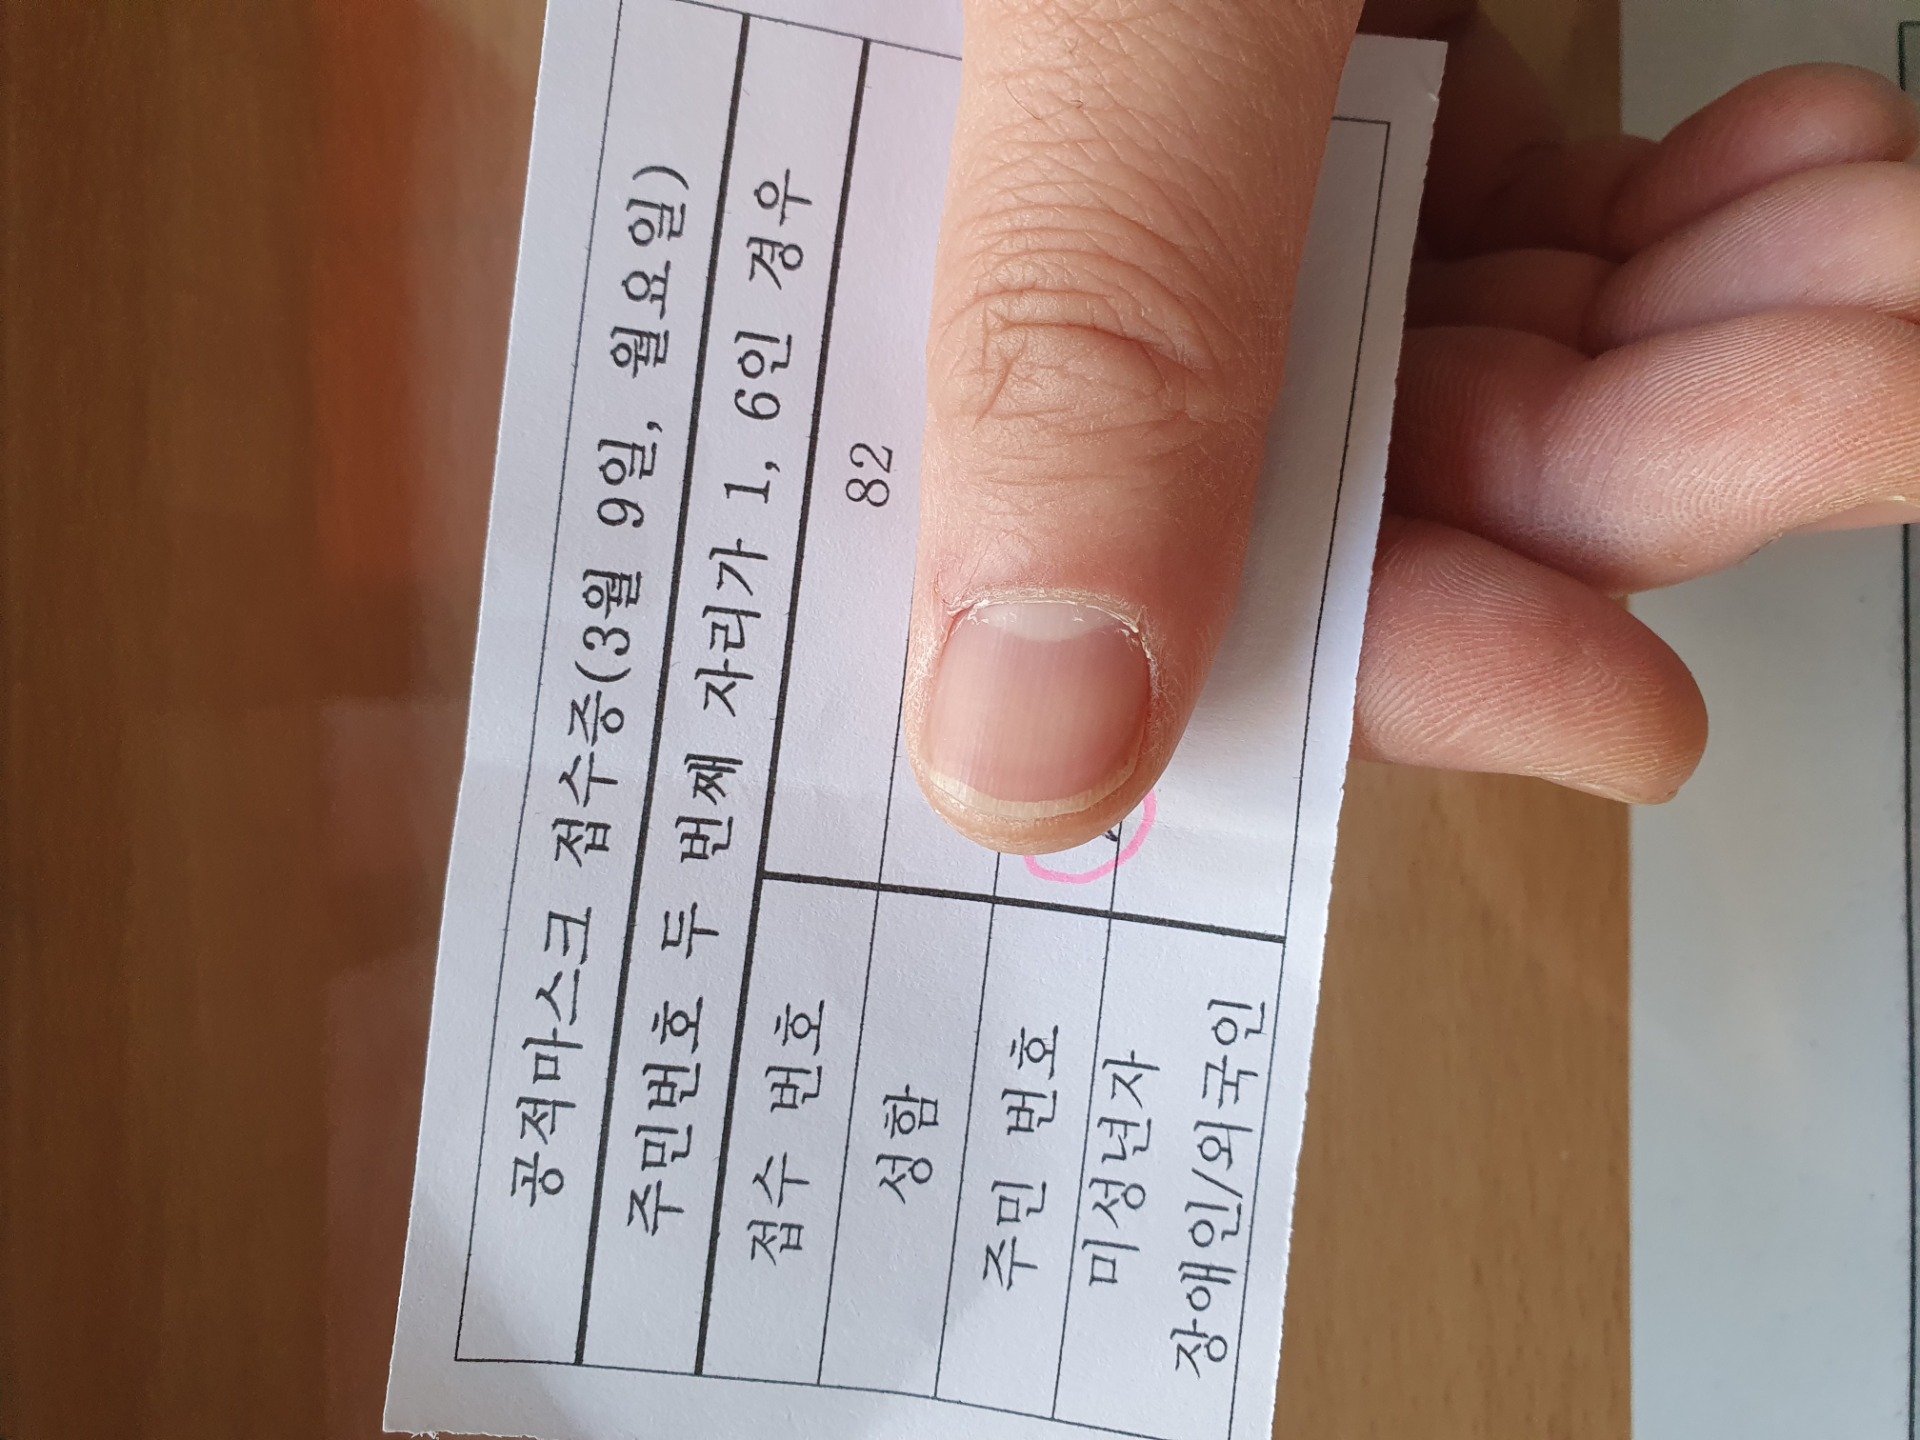 공적마스크 접수증(3월 9일, 월요일)
주민번호 두 번째 자리가 1, 6인 경우
접수 번호 82
성함
주민 번호
미성년자
장애인/외국인